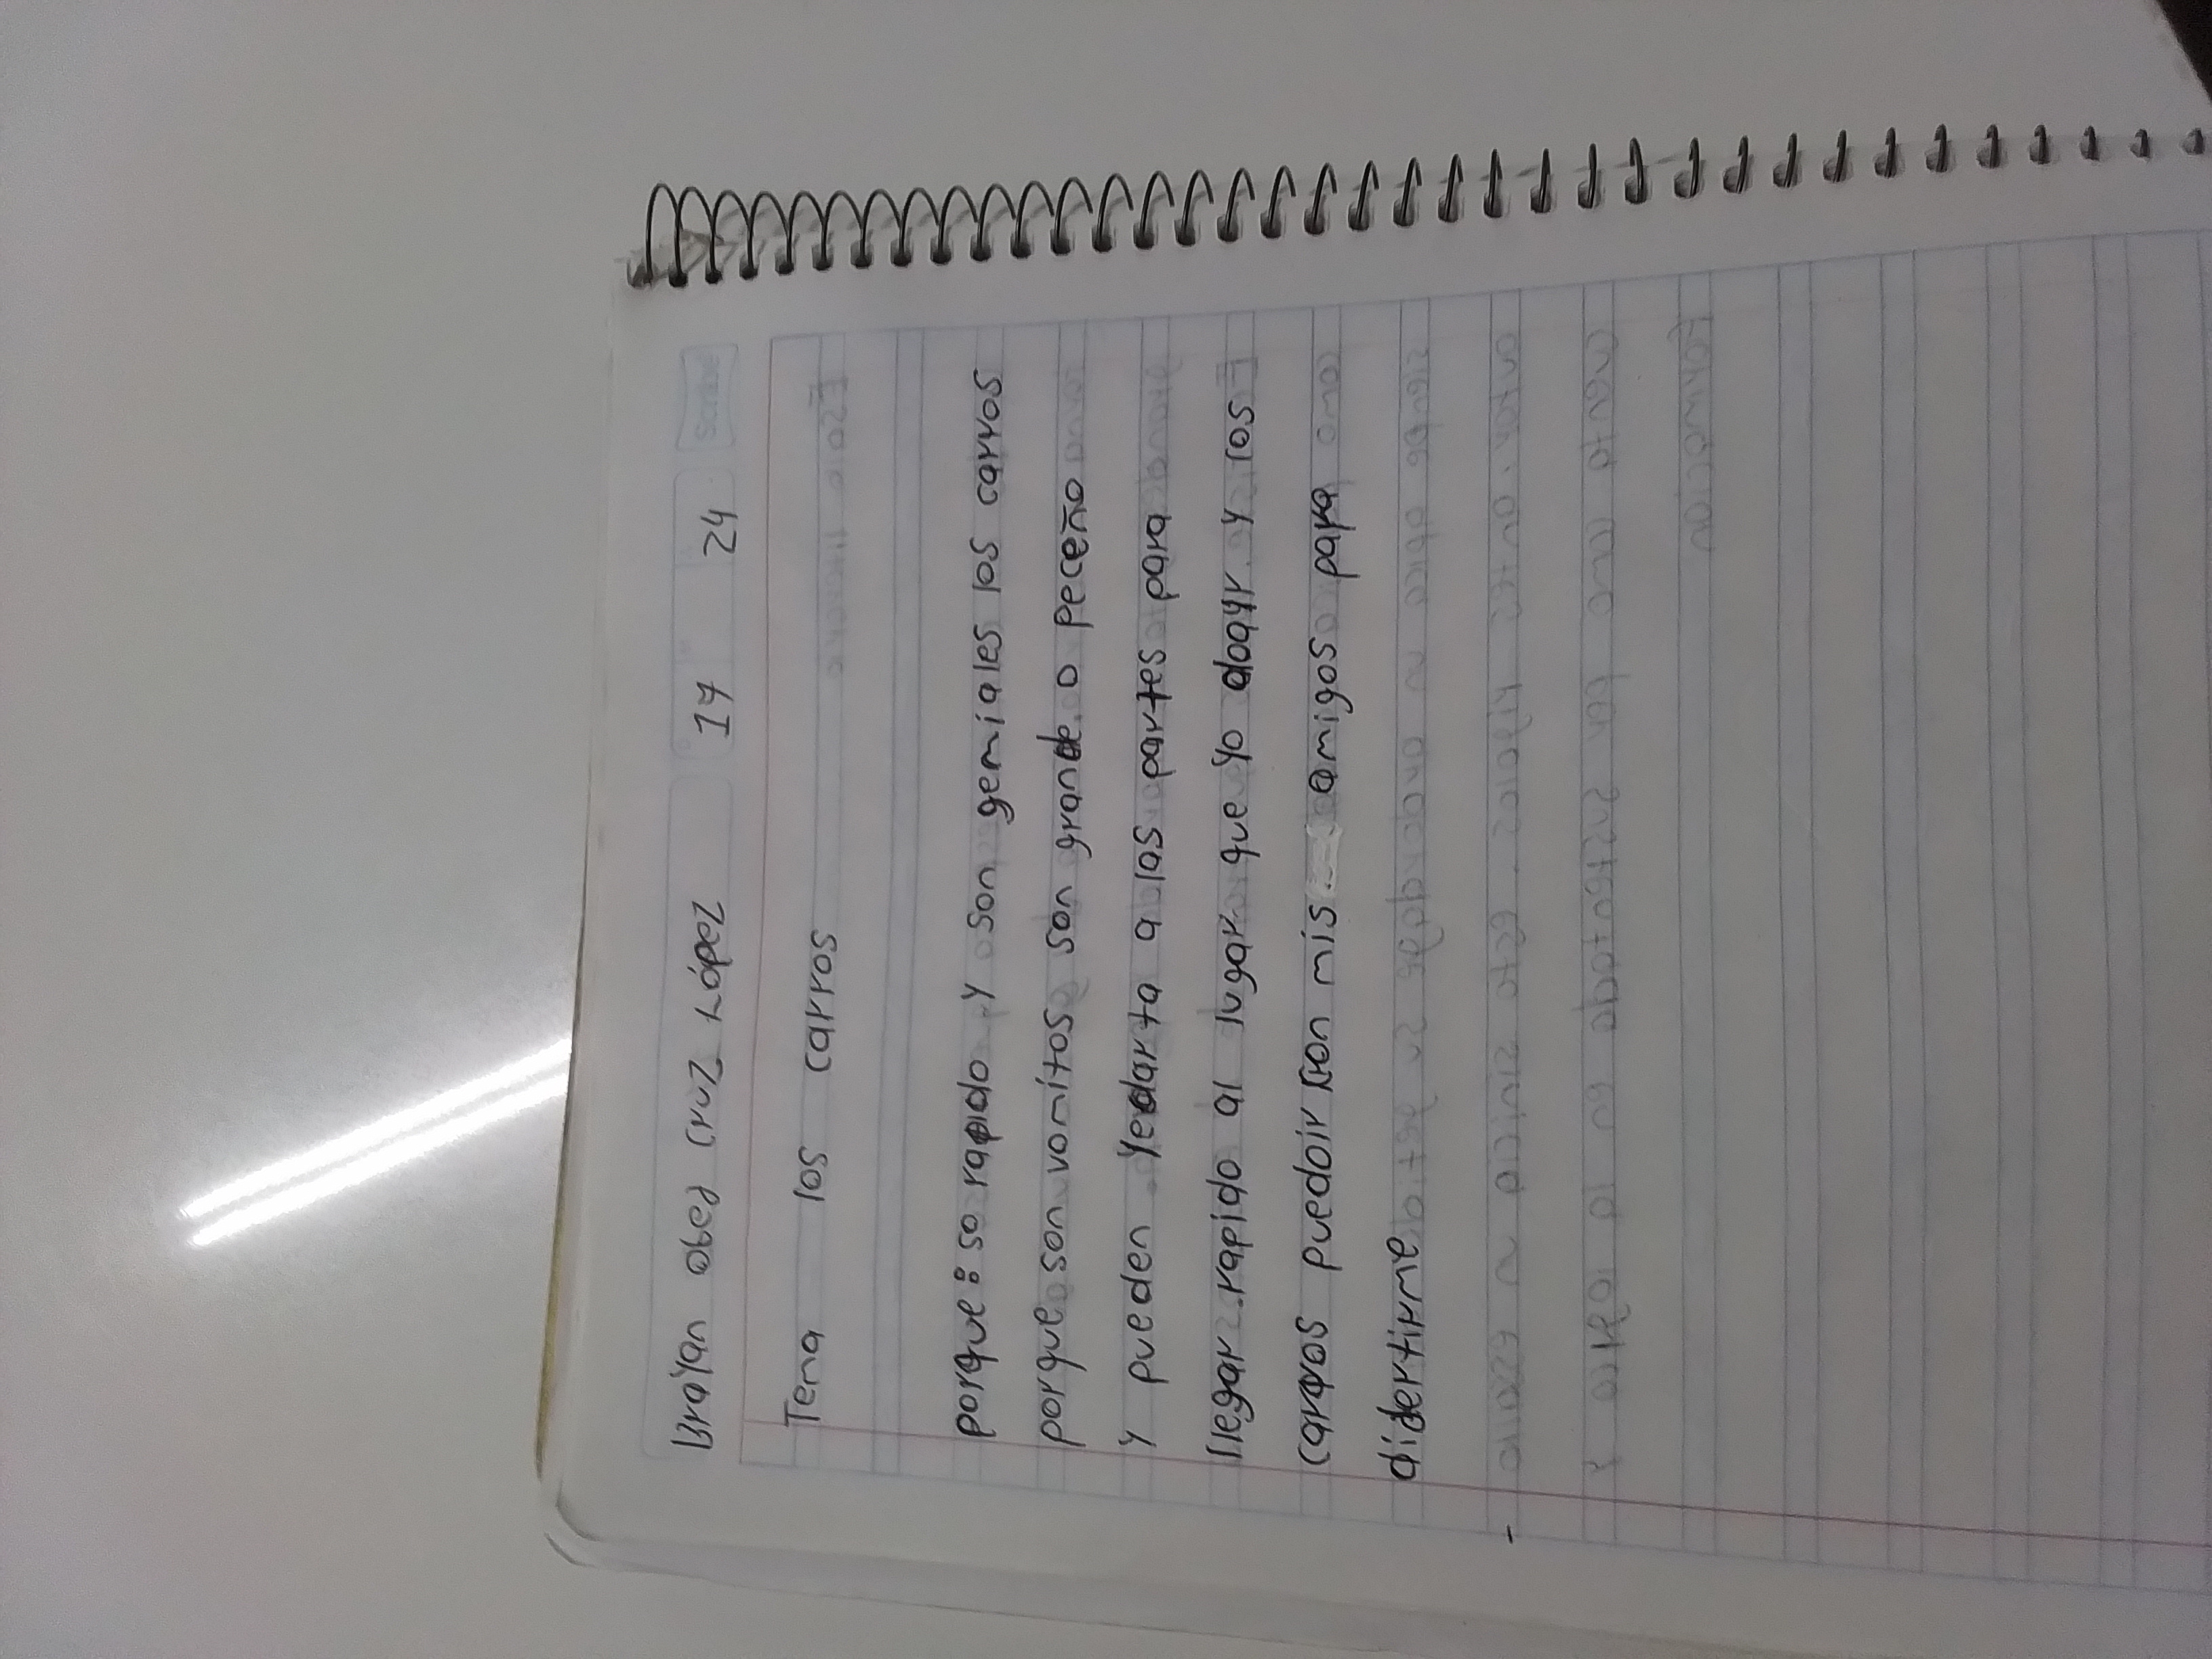 Brayan obed cruz López 17 24
Tema los carros
porque: so rapido y son gemiales los carros
porque son vonitos son grande o peceño
y pueden Yedarta a las partes para
llegar rapido al lugar que yo
carros puedoir con mis amigos para
didertirme